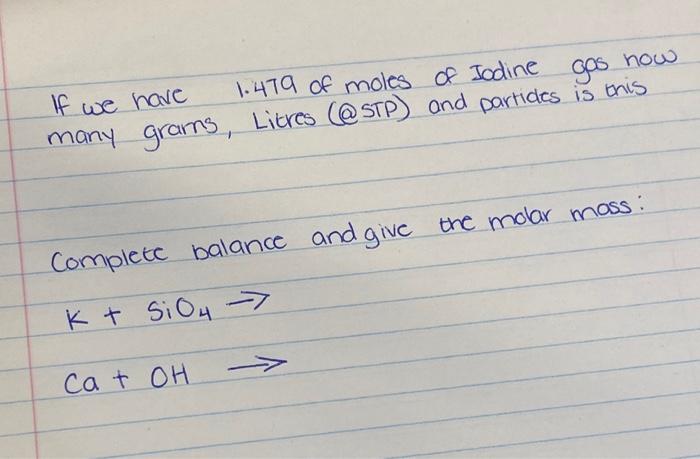 If we have 1.479 of moles of Iodine gas how
many grams, Litres (@STP) and particles is this
Complete balance and give the molar mass:
K + SiO4 →
Ca + OH →